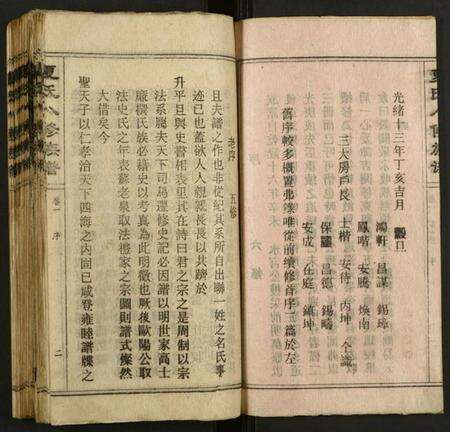 光緒十三年丁亥吉月 穀旦
鴻軒 昌謀 錫璋
鳳喈 安騰 煥南
三大房戶長 上楷 安待 丙坤 仝識
保羅 昌德 錫疇
安成 在庭 鎮坤
舊序較多概置弗錄唯從前續修首序三篇於左
六修
夏氏八修族譜
卷一 序
二
老序 五修
且夫譜之作也非從紀其系所自出聯一姓之名氏事
迹已也蓋欲人人親親長長以共躋於
升平且與史書相表里其在詩曰君之宗之是周制以宗
法系屬夫天下司馬遷修史記必因譜以明世家高士
廉撰氏族必藉史以考真為此明徵也厥後歐陽公取
法史氏之年表蘇老泉取法禮家之宗圖則譜式燦然
大備矣今
聖天子以仁孝治天下四海之內固已咸登雍睦譜牒之